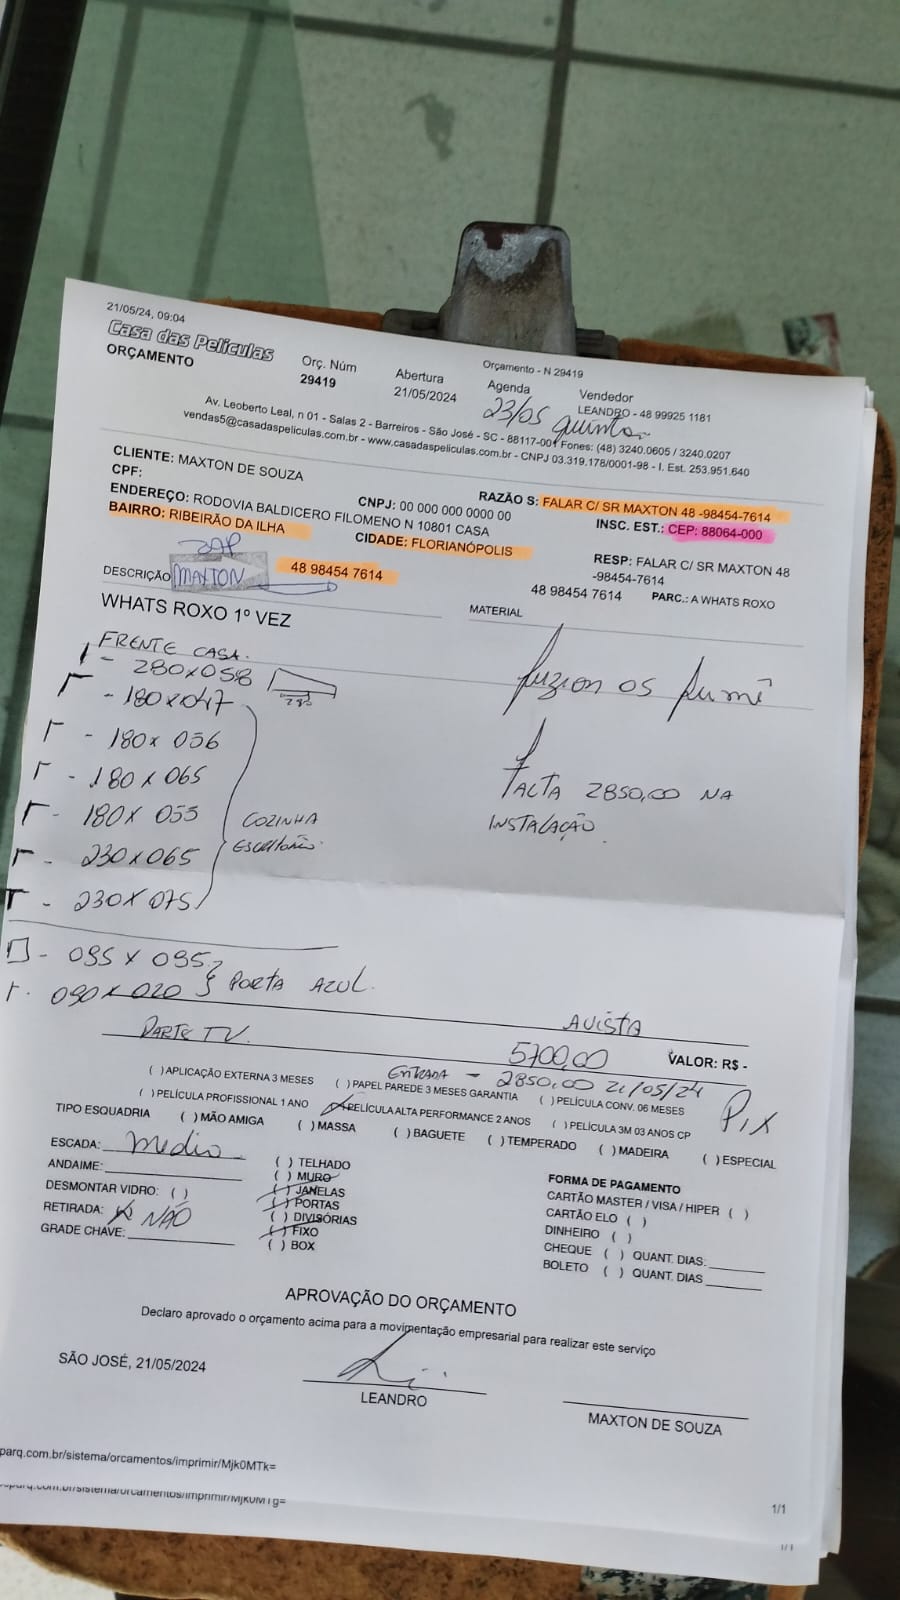 21/05/24, 09:04
Orçamento - N 29419
Casa das Películas
ORÇAMENTO
Orç. Núm
29419
Abertura
21/05/2024
Agenda
23/05 quinta
Vendedor
LEANDRO - 48 99925 1181
Av. Leoberto Leal, n 01 - Salas 2 - Barreiros - São José - SC - 88117-001 Fones: (48) 3240.0605 / 3240.0207
vendas5@casadaspeliculas.com.br - www.casadaspeliculas.com.br - CNPJ 03.319.178/0001-98 - I. Est. 253.951.640
CLIENTE: MAXTON DE SOUZA
RAZÃO S: FALAR C/ SR MAXTON 48 -98454-7614
CPF:
CNPJ: 00 000 000 0000 00
INSC. EST.: CEP: 88064-000
ENDEREÇO: RODOVIA BALDICERO FILOMENO N 10801 CASA
BAIRRO: RIBEIRÃO DA ILHA
CIDADE: FLORIANÓPOLIS
RESP: FALAR C/ SR MAXTON 48
-98454-7614
ZAP
MAXTON
48 98454 7614
48 98454 7614
PARC.: A WHATS ROXO
DESCRIÇÃO
MATERIAL
WHATS ROXO 1º VEZ
FRENTE CASA.
- 280x058
280
- 180x047
- 180x 056
- 180x065
- 180x 055
- 230x065
- 230x075
COZINHA
ESCRITÓRIO.
fuzion 05 fumê
FALTA 2850,00 NA
INSTALAÇÃO.
- 095 x 095
090x020 } PORTA AZUL.
PARTE TV.
AVISTA
5700,00
VALOR: R$ -
ENTRADA - 2850,00 21/05/24
PIX
( ) APLICAÇÃO EXTERNA 3 MESES
( ) PAPEL PAREDE 3 MESES GARANTIA
( ) PELÍCULA CONV. 06 MESES
( ) PELÍCULA PROFISSIONAL 1 ANO
PELÍCULA ALTA PERFORMANCE 2 ANOS
( ) PELÍCULA 3M 03 ANOS CP
TIPO ESQUADRIA
( ) MÃO AMIGA
( ) MASSA
( ) BAGUETE
( ) TEMPERADO
( ) MADEIRA
( ) ESPECIAL
ESCADA: Medio
ANDAIME:
DESMONTAR VIDRO: ( )
RETIRADA: (X) NÃO
GRADE CHAVE:
( ) TELHADO
( ) MURO
( ) JANELAS
( ) PORTAS
( ) DIVISÓRIAS
( ) FIXO
( ) BOX
FORMA DE PAGAMENTO
CARTÃO MASTER / VISA / HIPER ( )
CARTÃO ELO ( )
DINHEIRO ( )
CHEQUE ( ) QUANT. DIAS:
BOLETO ( ) QUANT. DIAS
APROVAÇÃO DO ORÇAMENTO
Declaro aprovado o orçamento acima para a movimentação empresarial para realizar este serviço
SÃO JOSÉ, 21/05/2024
LEANDRO
MAXTON DE SOUZA
parq.com.br/sistema/orcamentos/imprimir/Mjk0MTk=
1/1
parq.com.br/sistema/orcamentos/imprimir/Mjk0MTg=
1/1